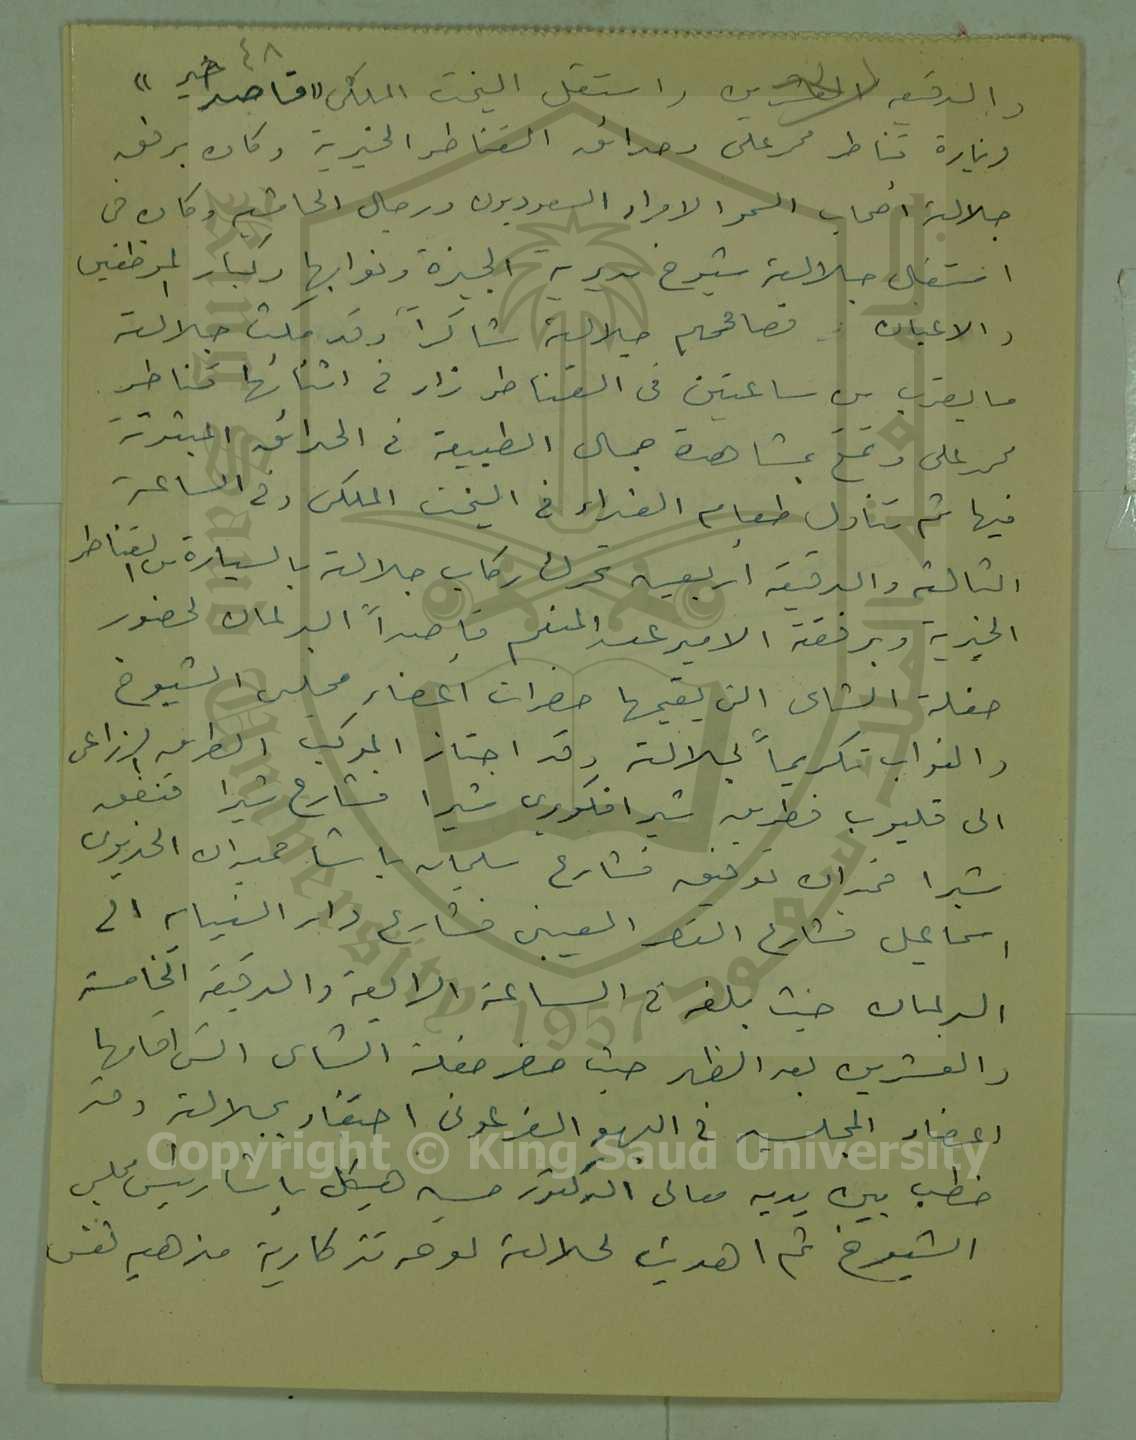 ٤٨
والدقيقه العشرين واستقل اليخت الملكى "قاصد خير"
وزيارة قناطر محمد على وحدائق القناطر الخيرية وكان برفقه
جلالته أصحاب السمو الامراء السعوديون ورجال الحاشيه وكان فى
استقبال جلالته شيوخ مديرية الجيزة ونوابها وكبار الموظفين
والاعيان فصافحهم جلالته شاكراً وقد مكث جلالته
ما يقرب من ساعتين فى القناطر زار فى اثنائها قناطر
محمد على وتمتع بمشاهدة جمال الطبيعة فى الحدائق
فيها ثم تناول طعام الغداء فى اليخت الملكى وفى الساعة
الثالثة والدقيقه أربعين تحرك ركاب جلالته بالسيارة من القناطر
الخيرية وبرفقة الامير عبد المنعم قاصداً البرلمان لحضور
حفلة الشاى التى يقيمها حضرات أعضاء مجلس الشيوخ
والنواب تكريماً لجلالته وقد اجتاز الموكب الطريق الزراعى
الى قليوب فطريق شبرا فكوبرى شبرا فشارع شبرا فنفق
شبرا فميدان توفيق فشارع سليمان باشا فميدان الخديوى
اسماعيل فشارع القصر العينى فشارع دار النيابه الى
البرلمان حيث بلغه فى الساعة الرابعة والدقيقه الخامسة
والعشرين بعد الظهر حيث حضر حفلة الشاى التى اقامها
اعضاء المجلسين فى البهو الفرعونى احتفاء بجلالته وقد
خطب بين يديه معالى الدكتور حسين هيكل باشا رئيس مجلس
الشيوخ ثم اهديت لجلالته لوحه تذكارية مذهبه نقش
جامعة الملك سعود
King Saud University 1957
Copyright © King Saud University